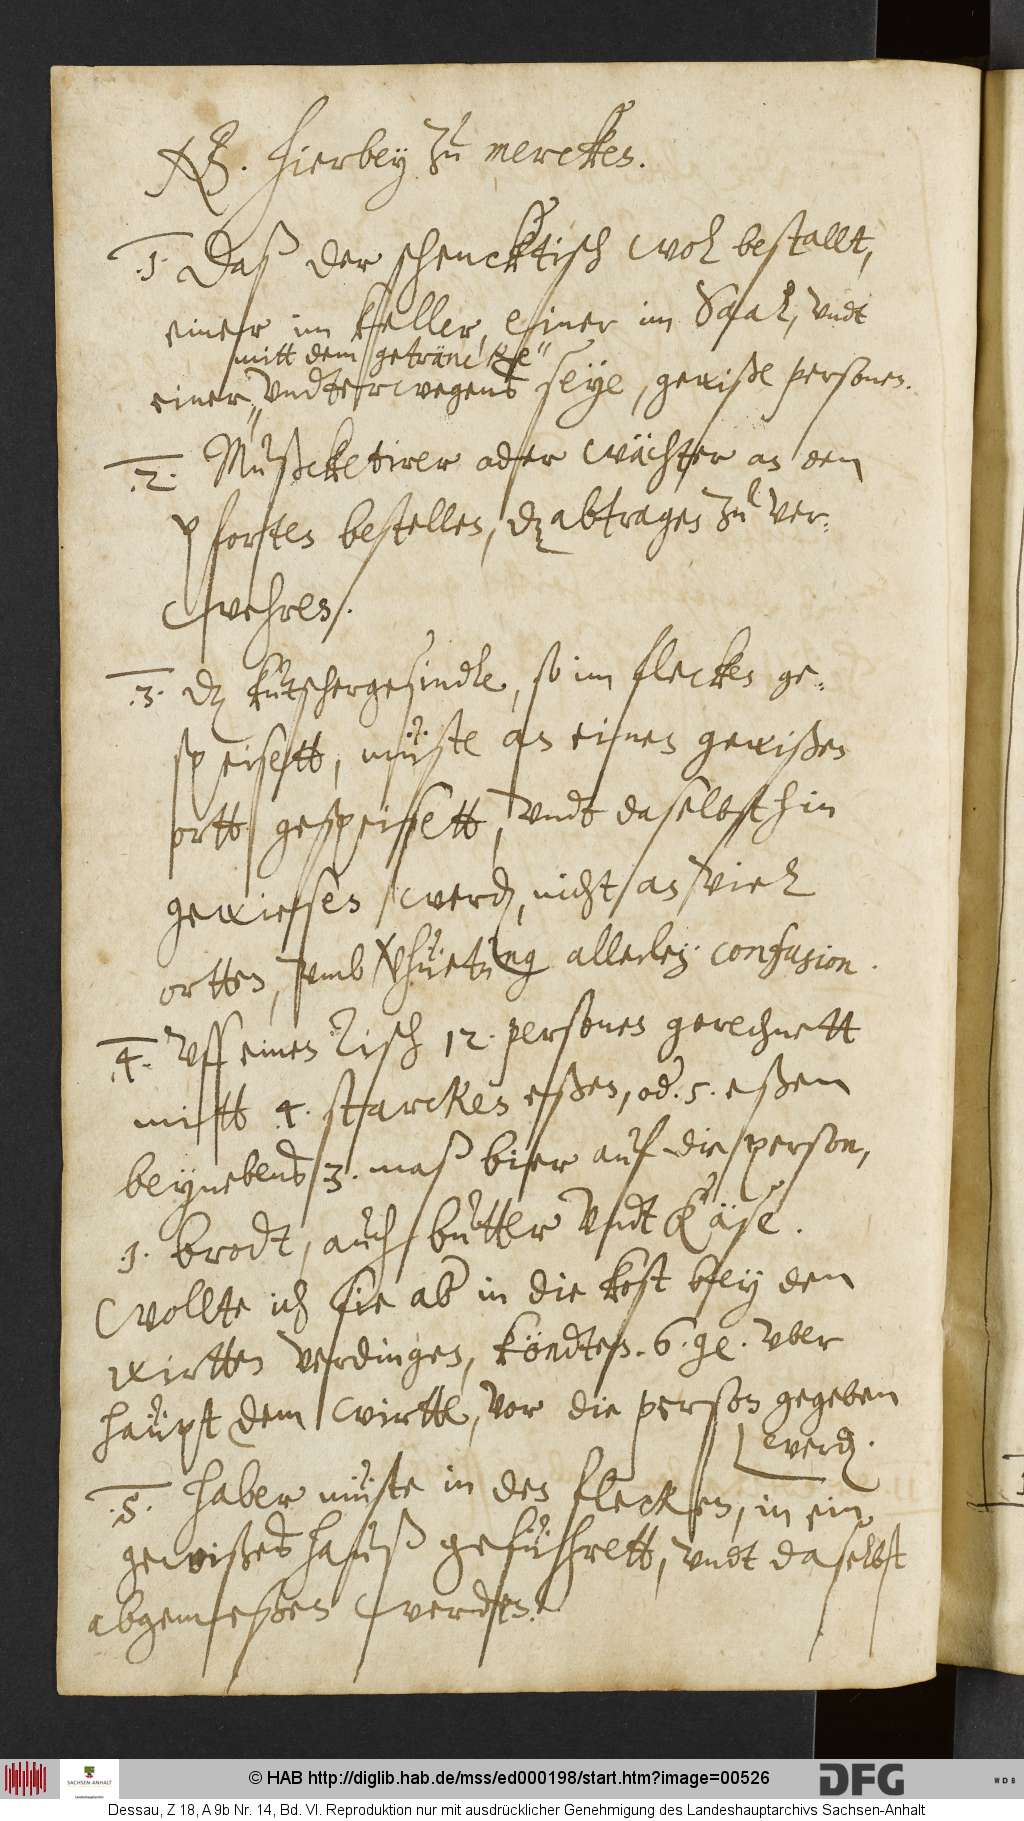 NB. Hierbey zu mercken.
.1. Daß der schencktisch wol bestallt,
einer im keller, einer im Saal, vndt
mitt dem geträncke"
einer," vndterwegens seye, gewiße personen.
.2. Mußcketirer oder wächter an den
pforten bestellen, dz abtragen zu ver-
wehren.
.3. dz kutschergesindle, so im flecken ge-
speisett, müste an einen gewißen
ortt gespeisett, vndt daselbst hin
gewiesen werden, nicht an viel
ortten, vmb verhuetung allerley confusion.
.4. Vff einen Tisch 12. personen gerechnett
mitt 4. starcken eßen, od. 5. eßen
beynebens 3. maß bier auf die person,
.1. brodt, auch butter vndt Käse.
Wollte ich sie aber in die kost bey den
wirtten verdingen, köndten. 6. ge. vber
haüpt dem wirtte, vor die person gegeben
werden.
.5. Haber müste in den flecken, in ein
gewißes hauß geführett, vndt daselbst
abgemeßen werden.
© HAB http://diglib.hab.de/mss/ed000198/start.htm?image=00526
SACHSEN-ANHALT
DFG
WDB
Dessau, Z 18, A 9b Nr. 14, Bd. VI. Reproduktion nur mit ausdrücklicher Genehmigung des Landeshauptarchivs Sachsen-Anhalt